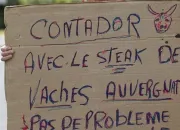 CONTADOR
AVEC LE STEAK DE
VACHES AUVERGNAT
PAS DE PROBLEME